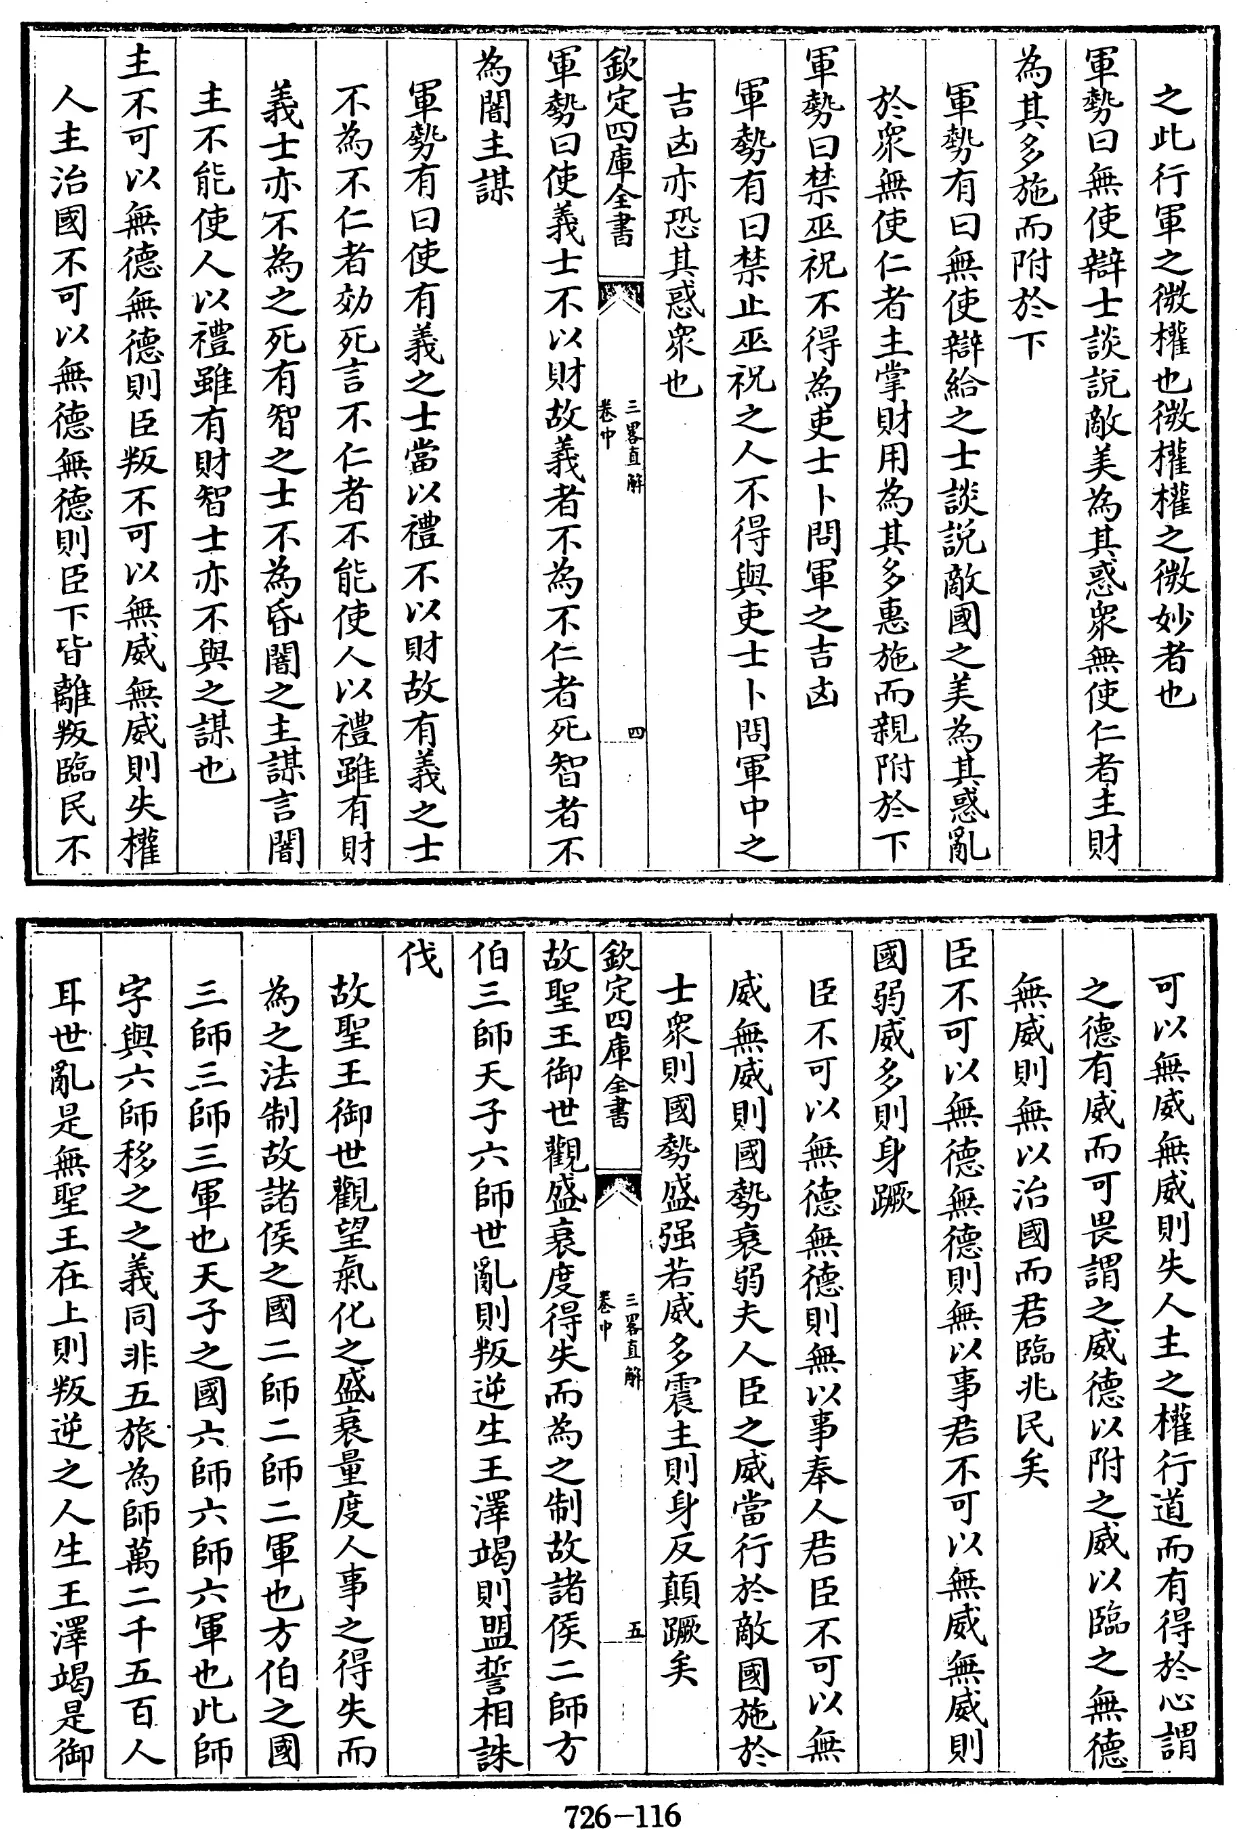 之此行軍之微權也微權權之微妙者也
軍勢曰無使辯士談說敵美為其惑衆無使仁者主財
為其多施而附於下
軍勢有曰無使辯給之士談説敵國之美為其惑亂
於衆無使仁者主掌財用為其多惠施而親附於下
軍勢曰禁巫祝不得為吏士卜問軍之吉凶
軍勢有曰禁止巫祝之人不得與吏士卜問軍中之
吉凶亦恐其惑衆也
欽定四庫全書
三畧直解
卷中
四
軍勢曰使義士不以財故義者不為不仁者死智者不
為闇主謀
軍勢有曰使有義之士當以禮不以財故有義之士
不為不仁者効死言不仁者不能使人以禮雖有財
義士亦不為之死有智之士不為昏闇之主謀言闇
主不能使人以禮雖有財智士亦不與之謀也
主不可以無德無德則臣叛不可以無威無威則失權
人主治國不可以無德無德則臣下皆離叛臨民不
可以無威無威則失人主之權行道而有得於心謂
之德有威而可畏謂之威德以附之威以臨之無德
無威則無以治國而君臨兆民矣
臣不可以無德無德則無以事君不可以無威無威則
國弱威多則身蹶
臣不可以無德無德則無以事奉人君臣不可以無
威無威則國勢衰弱夫人臣之威當行於敵國施於
士衆則國勢盛强若威多震主則身反顛蹶矣
欽定四庫全書
三畧直解
卷中
五
故聖王御世觀盛衰度得失而為之制故諸侯二師方
伯三師天子六師世亂則叛逆生王澤竭則盟誓相誅
伐
故聖王御世觀望氣化之盛衰量度人事之得失而
為之法制故諸侯之國二師二師二軍也方伯之國
三師三師三軍也天子之國六師六師六軍也此師
字與六師移之之義同非五旅為師萬二千五百人
耳世亂是無聖王在上則叛逆之人生王澤竭是御
726-116